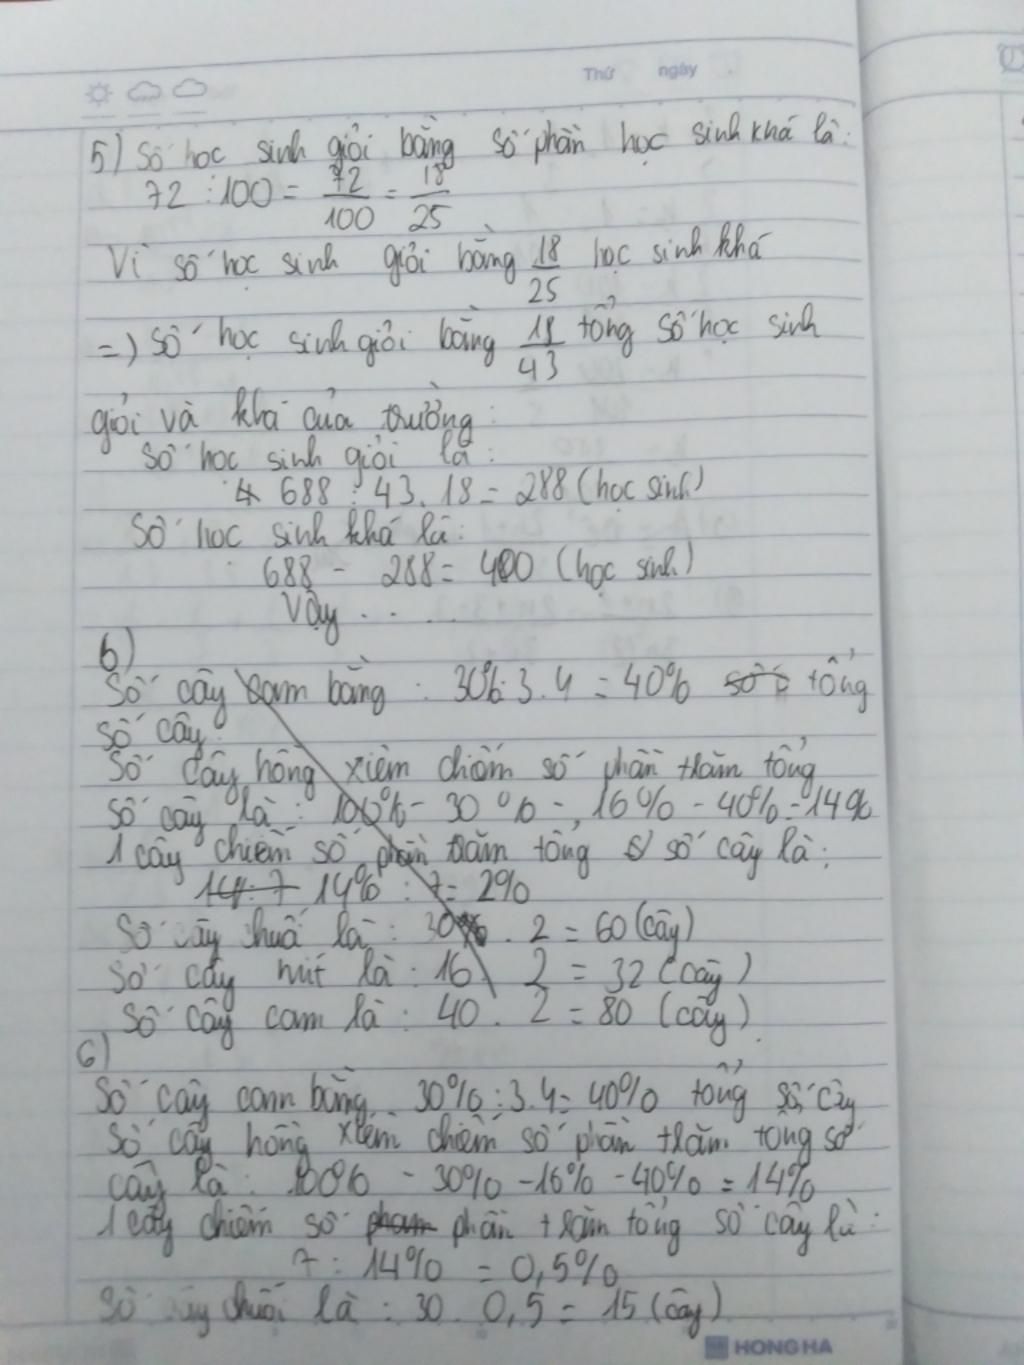 Thứ ngày
5) Số học sinh giỏi bằng số phần học sinh khá là:
72 : 100 = 72/100 = 18/25
Vì số học sinh giỏi bằng 18/25 học sinh khá
=) Số học sinh giỏi bằng 18/43 tổng số học sinh
giỏi và khá của trường:
Số học sinh giỏi là:
688 : 43 . 18 = 288 (học sinh)
Số học sinh khá là:
688 - 288 = 400 (học sinh)
Vậy . . . . .
6)
Số cây cam bằng : 30% : 3 . 4 = 40% số tổng
số cây.
Số cây hồng xiêm chiếm số phần trăm tổng
số cây là : 100% - 30% - 16% - 40% = 14%
1 cây chiếm số phần trăm tổng số cây là:
14 : 7 14% : 7 = 2%
Số cây chuối là : 30 . 2 = 60 (cây)
Số cây mít là : 16 . 2 = 32 (cây)
Số cây cam là : 40 . 2 = 80 (cây).
6)
Số cây cam bằng 30% : 3 . 4 = 40% tổng số cây
Số cây hồng xiêm chiếm số phần trăm tổng số
cây là : 100% - 30% - 16% - 40% = 14%
1 cây chiếm số pham phần trăm tổng số cây là:
7 : 14% = 0,5%
Số cây chuối là : 30 . 0,5 = 15 (cây)
HONG HA